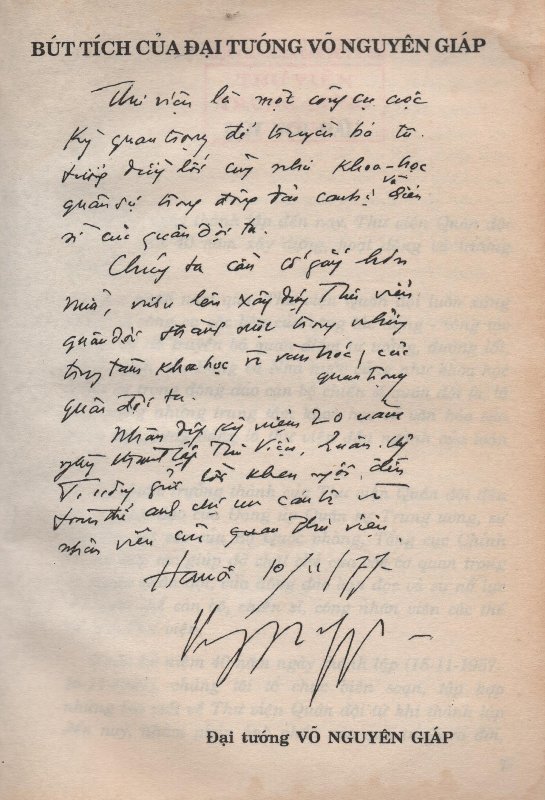 BÚT TÍCH CỦA ĐẠI TƯỚNG VÕ NGUYÊN GIÁP
Thư viện là một công cụ cực
kỳ quan trọng để truyền bá tư
tưởng đường lối cũng như khoa-học
quân sự trong đông đảo cán bộ và chiến
sĩ của quân đội ta.
Chúng ta cần cố gắng hơn
nữa, vươn lên xây dựng Thư viện
quân đội thành một trong những
trung tâm khoa học và văn hóa, của
quan trọng
quân đội ta.
Nhân dịp kỷ niệm 20 năm
ngày thành lập Thư Viện, Quân ủy
T. ương gửi lời khen ngợi đến
toàn thể anh chị em cán bộ và
nhân viên cơ quan Thư viện
Hà nội 10/11/77
Đại tướng VÕ NGUYÊN GIÁP